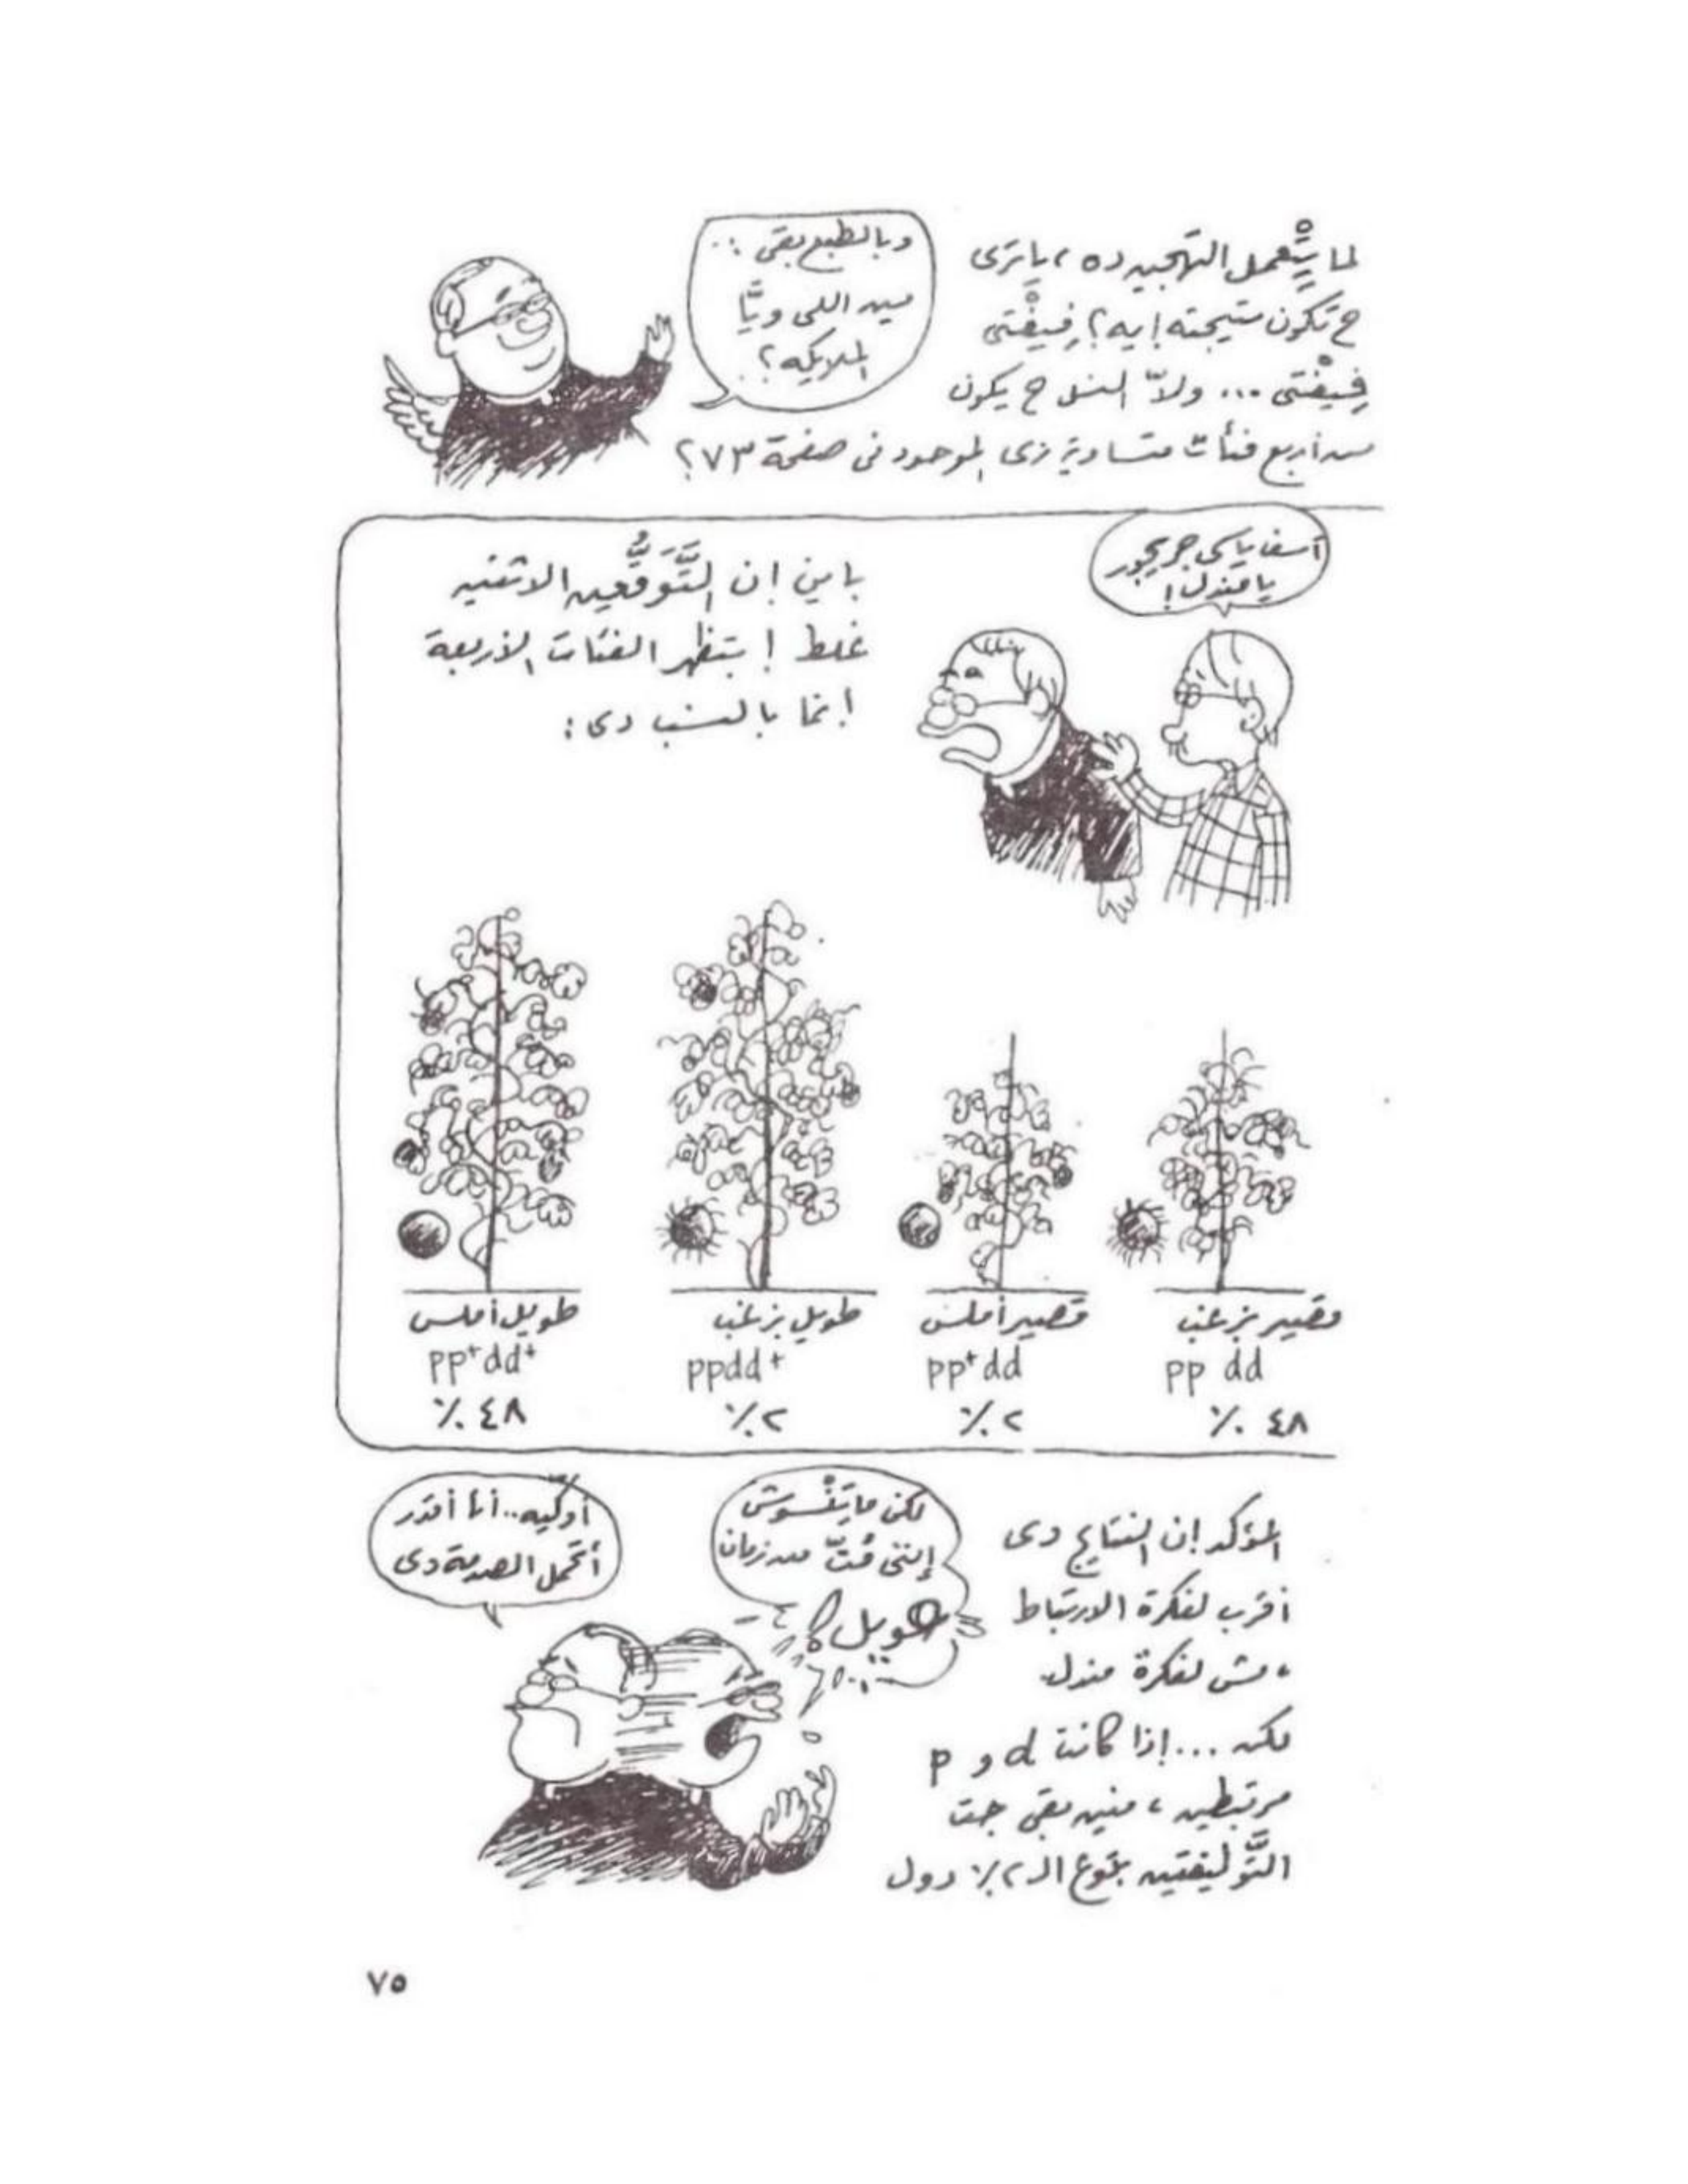 لما يتْعمل التهجين ده، يا ترى
ح تكون نتيجته إيه؟ فِيفْتى
فِيفْتى ... ولاّ النسل ح يكون
من أربع فئات متساوية زى الموجود فى صفحة ٧٣؟
وبالطبع بقى ..
مين اللى ويَّا
الملايكه؟
آسف يا سى جريجور
يا مندل!
باين إن التَّوَقُّعين الاتنين
غلط! بتظهر الفئات الأربعة
إنما بالنسب دى:
قصير بزغب
pp dd
٤٨ ٪
قصير أملس
pp+dd
٢ ٪
طويل بزغب
ppdd+
٢ ٪
طويل أملس
pp+dd+
٤٨ ٪
المؤكد إن النتايج دى
أقرب لفكرة الارتباط
، مش لفكرة مندل
لكن ... إذا كانت d و p
مرتبطين، منين بقى جت
التَّوليفتين بتوع الـ ٢٪ دول
لكن ما تِنْسوش
إننى مُتّ من زمان
طويل
أوكيه.. أنا أقدر
أتحمل الصدمة دى
٧٥